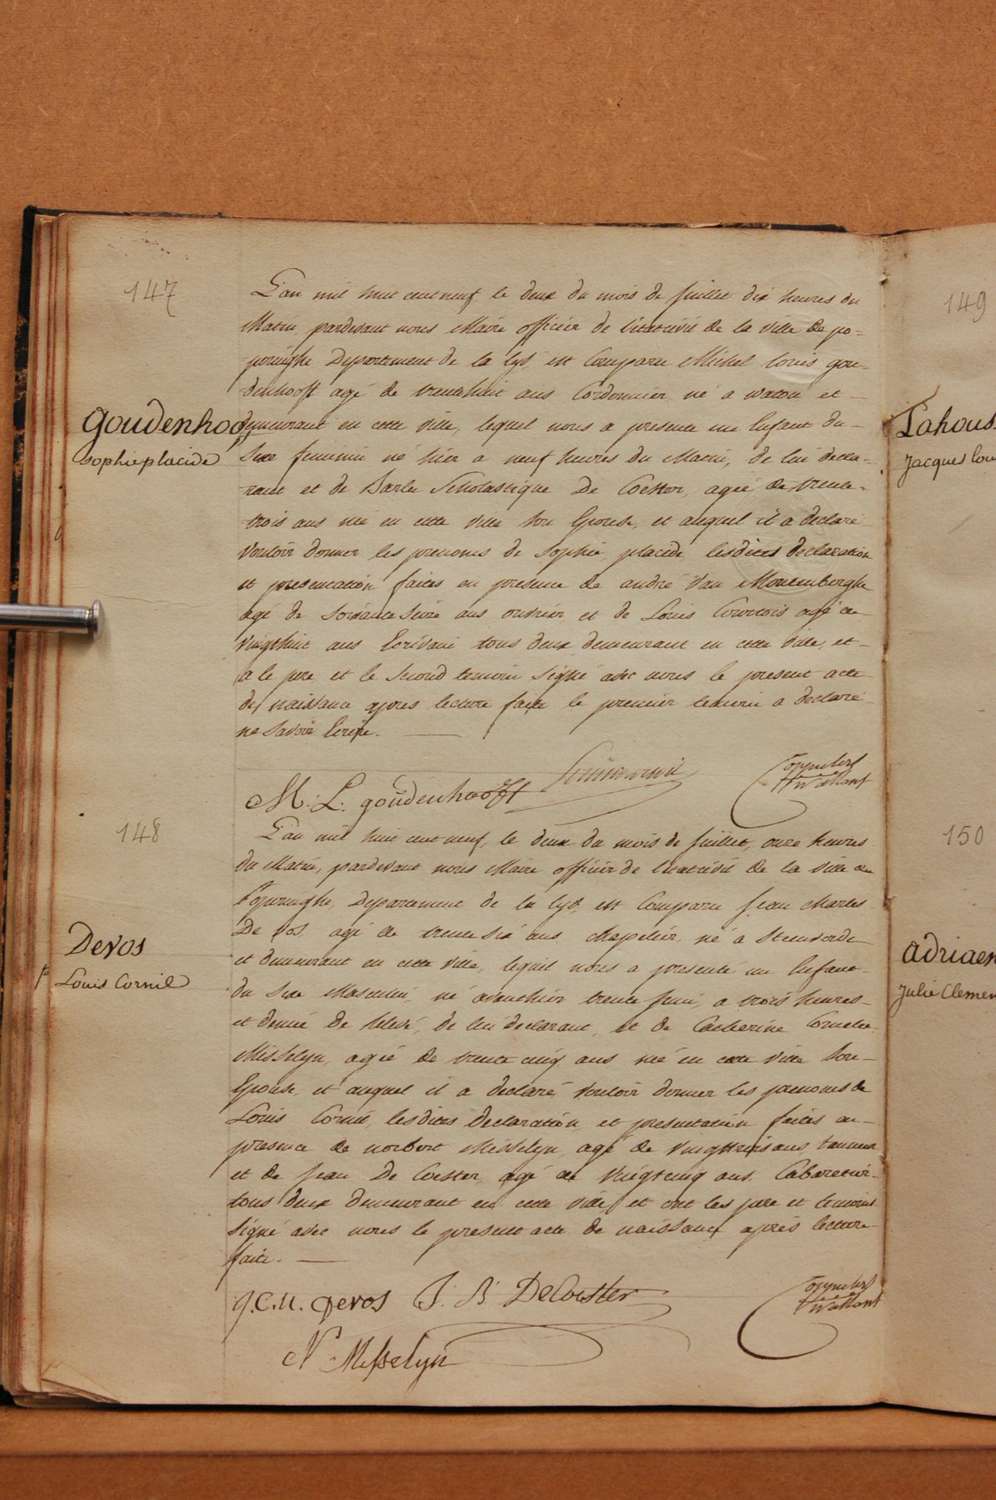 147
L'an mil huit cent neuf le deux du mois de juillet dix heures du
Matin, pardevant nous Maire officier de l'état civil de la ville de po-
peringhe Département de la Lys, est Comparu Michel Louis gou-
denhooft agé de trentehuit ans Cordonnier né a watou et
goudenhoo
demeurant en cette ville, lequel nous a presenté un Enfant du
sophie placide
Sexe feminin né hier a neuf heures du Matin, de lui decla-
rant et de Barbe Scholastique De Coester, agée de trente
trois ans née en cette ville son Epouse, et auquel il a declaré
vouloir donner les prenoms de Sophie placide lesdites declaration
et presentation faites en presence de andré Van Mouzenberghe
agé de soixante seize ans ouvrier et de Louis Courtois agé de
vingthuit ans Ecrivain tous deux demeurant en cette ville, et
a le pere et le second temoin signé avec nous le present acte
de naissance apres lecture faite le premier temoin a declaré
ne savoir Ecrire.
M. L. goudenhooft
148
L'an mil huit cent neuf, le deux du mois de juillet, onze heures
du Matin, pardevant nous Maire officier de l'état civil de la ville de
Poperinghe, Departement de la Lys, est Comparu Jean Charles
De vos, agé de trente six ans Chapelier, né a Steenvorde
Devos
et demeurant en cette ville, lequel nous a presenté un Enfant
Louis Cornil
du Sexe Masculin, né avanthier trente juin, a trois heures
et demie de relevé, de lui declarant, et de Catherine Cornelie
Messelyn, agée de trente cinq ans née en cette ville son
Epouse, et auquel il a declaré vouloir donner les prenoms de
Louis Cornil, lesdites Declaration et presentation faites en
presence de norbert Messelyn, agé de vingttrois ans, tanneur
et de Jean De Coester, agé de vingtcinq ans, Cabaretier
tous deux demeurant en cette ville, et ont les pere et temoins
signé avec nous le present acte de naissance après lecture
faite.
J.C.M. Devos J. B. DeCoester
N Messelyn
149
Lahous
Jacques Lou
150
adriaen
Julie Clemen